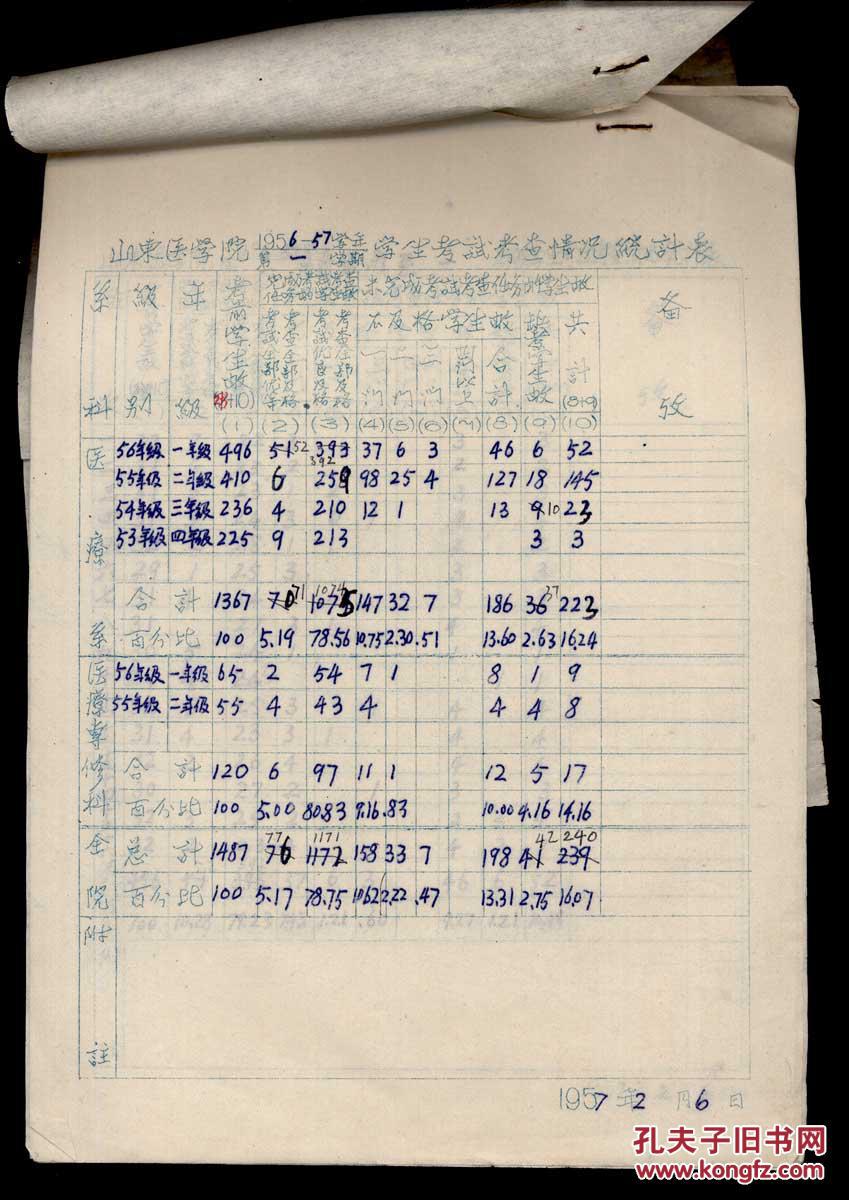 山東医学院 1956-57学年第一学期 学生考試考查情况統計表
系科 級別 年級 考查的学生数 (1) 完成考試考查任务的学生数 未完成考試考查任务的学生数 备攷
考試全部优等考查全部及格 (2) 考試优良及格考查全部及格 (3) 不及格学生数 缺考学生数 (9) 共計 (8+9) (10)
一門 (4) 二門 (5) 三門 (6) 四門以上 (7) 合計 (8)
医療系
56年級 一年級 496 51 52 393 392 37 6 3 46 6 52
55年級 二年級 410 6 259 98 25 4 127 18 145
54年級 三年級 236 4 210 12 1 13 9 10 23
53年級 四年級 225 9 213 3 3
合計 1367 70 71 1075 1074 147 32 7 186 36 37 223
百分比 100 5.19 78.56 10.75 2.30 .51 13.60 2.63 16.24
医療專修科
56年級 一年級 65 2 54 7 1 8 1 9
55年級 二年級 55 4 43 4 4 4 8
合計 120 6 97 11 1 12 5 17
百分比 100 5.00 80.83 9.16 .83 10.00 4.16 14.16
全院
总計 1487 76 77 1172 1171 158 33 7 198 41 42 239 240
百分比 100 5.17 78.75 10.62 2.22 .47 13.31 2.75 16.07
附註
1957年2月6日
孔夫子旧书网
www.kongfz.com